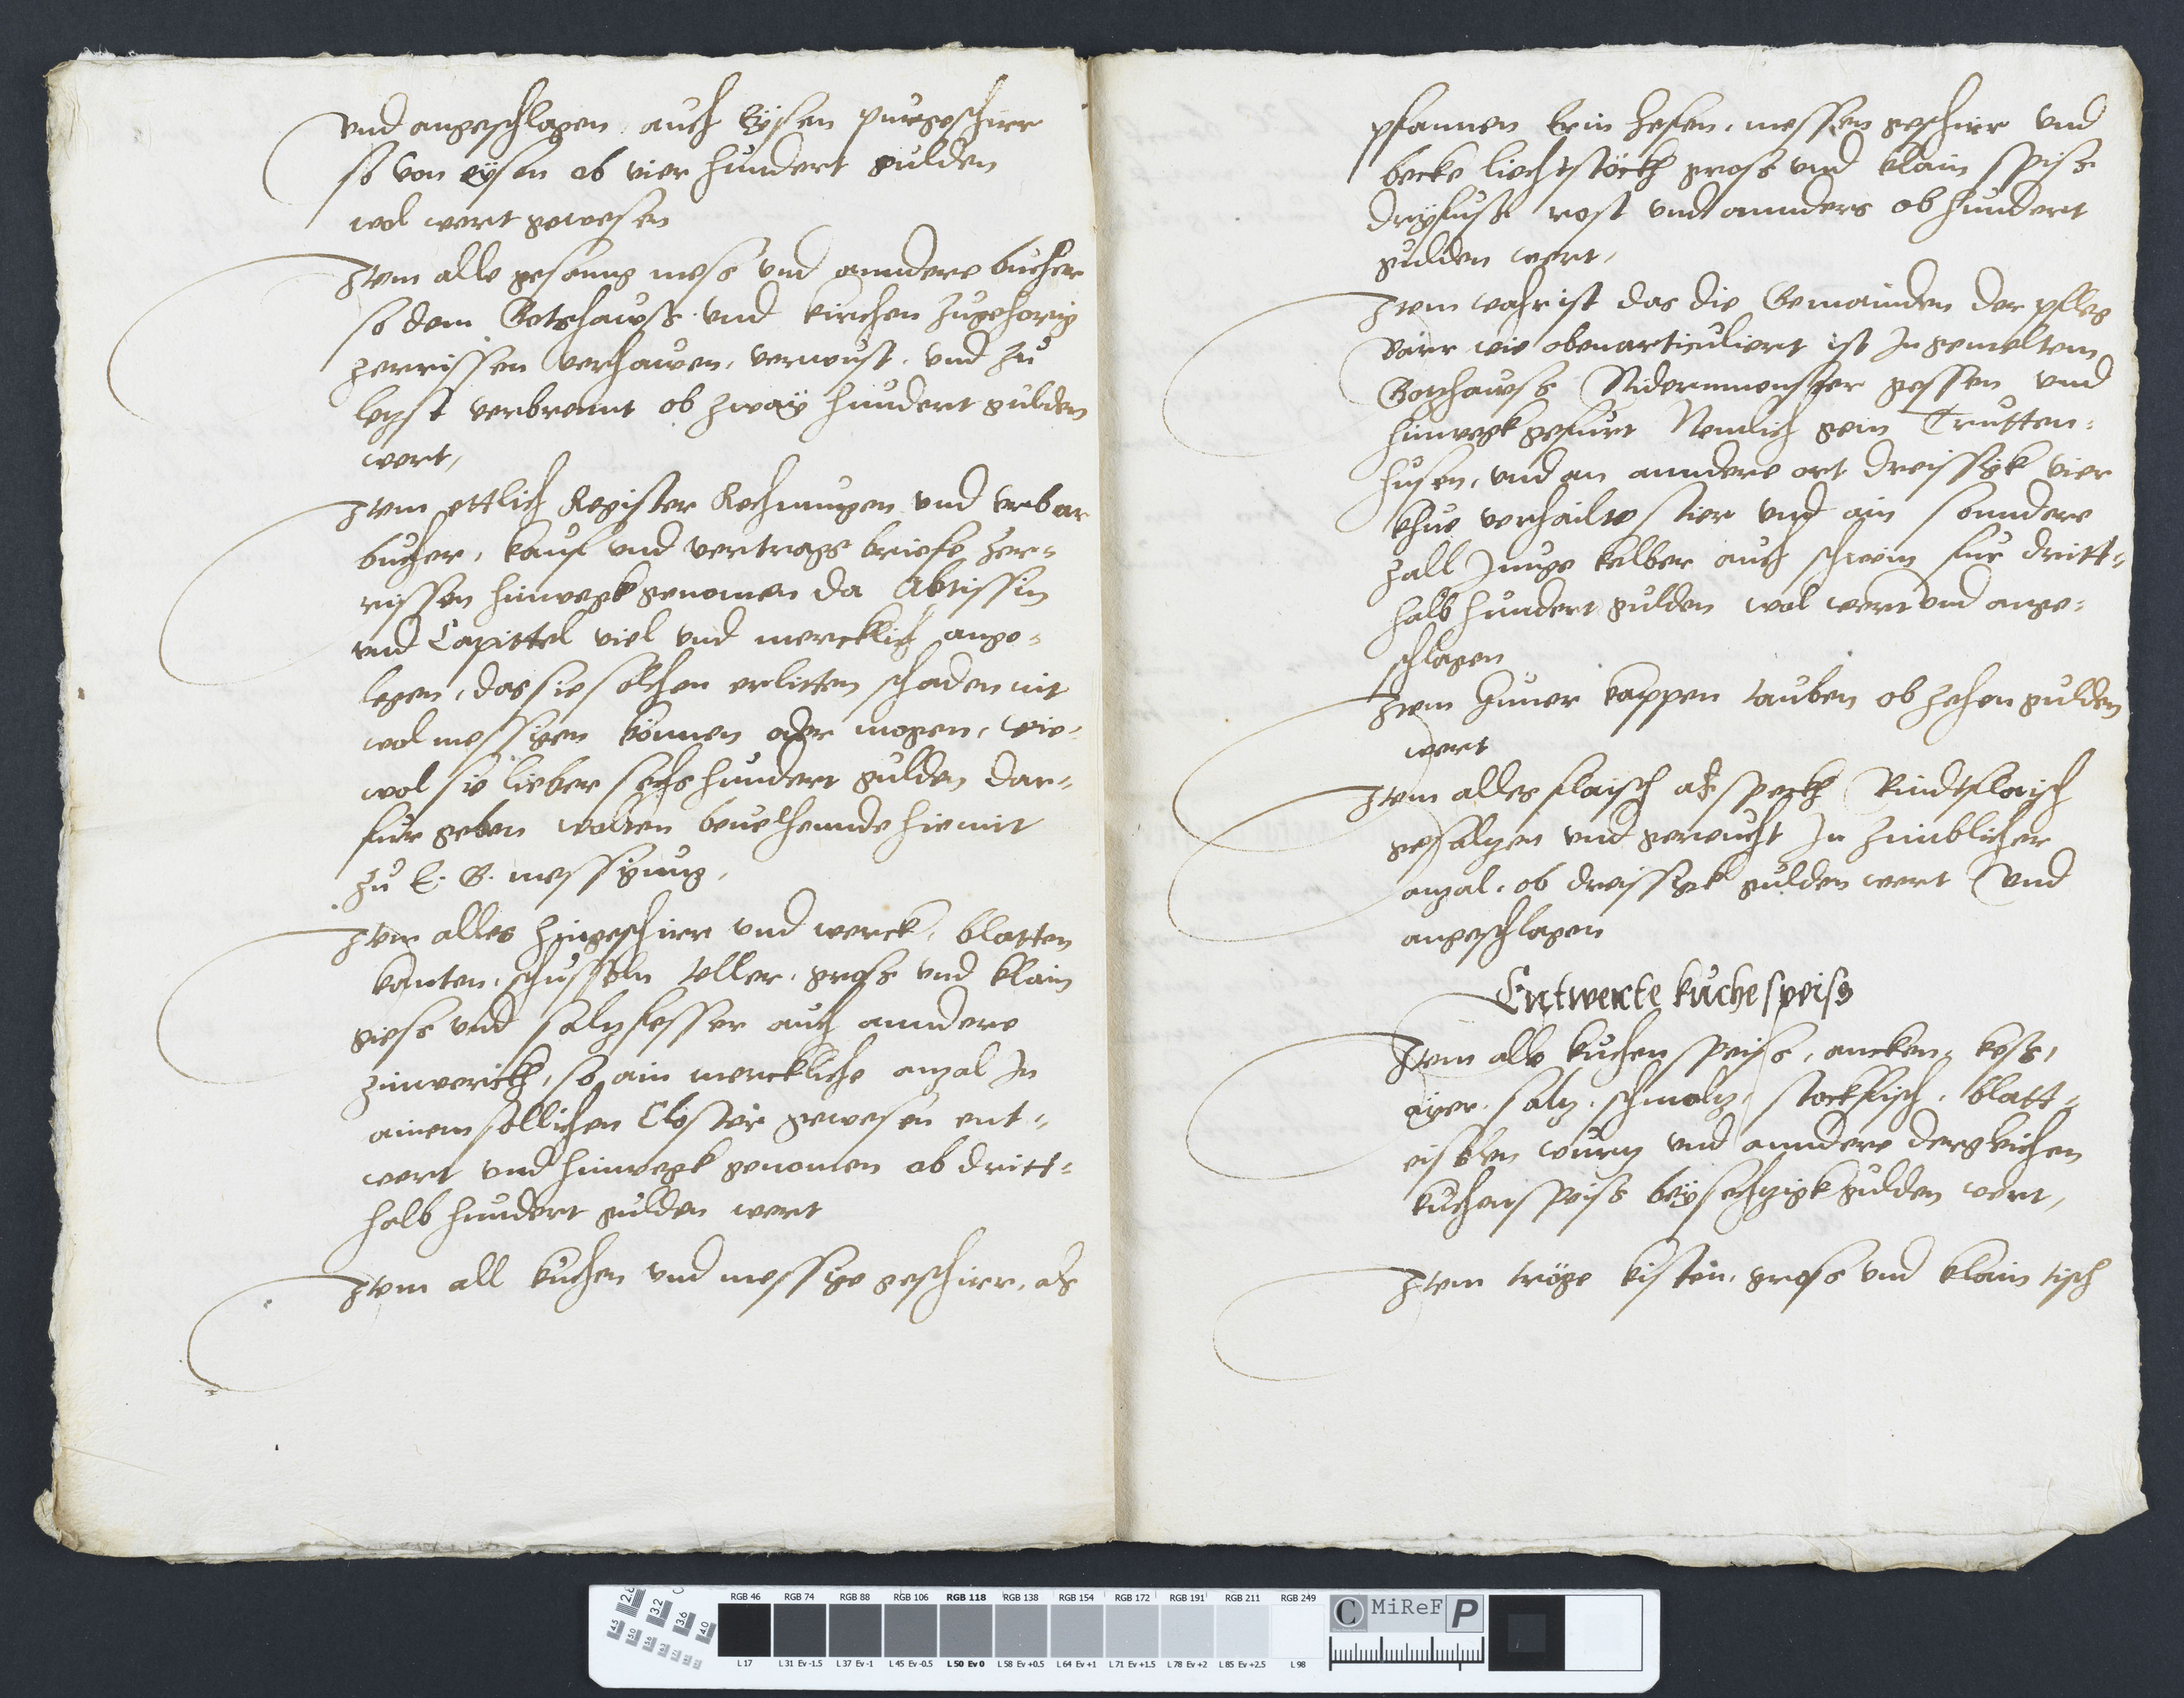 vnd angeschlagen, auch Eyssen purgeschirr
so von eysen ob vier hundert gulden
wol wert gewesen
Item alle gesanng mess vnd anndere bucher
so dem Gotshawss vnd kirchen zugehorig
zerrissen verhawen, verwust, vnd zu
letzst verbrennt ob zway hundert gulden
wert,
Item ettlich Register Rechnungen vnd vrbar
bucher, kauf vnd vertrags briefe zer-
rissen hinwegk genomen da Abtissin
vnd Capittel viel vnd mercklich ange-
legen, das sie solchen erlitten schaden nit
wol messigen können oder mogen, wie-
wol sie lieber sechs hundert gulden dar-
fur geben wolten beuelhennde hiemit
zu E. G. messigung,
Item alles zingeschirr vnd werck, blatten
kanten, schusseln teller, gross vnd klain
giess vnd saltzfesser auch anndere
zinwerckh, so ain merckliche anzal In
ainem sollichen Closter gewesen ent-
wert vnd hinwegk genomen ob dritt-
halb hundert gulden wert
Item all kuchen vnd messige geschirr, als
pfannen Erin hefen, messen geschirr vnd
becke liechtstöckh gross vnd klain spiss
dryfuss rost vnd annders ob hundert
gulden wert,
Item wahr ist das die Gemainden der pfleg
Barr wie obenarticuliert ist In gemeltem
Gotzhawss Nidernmonster gessen vnd
hinwegk gefurt Nemlich gein Trutten-
husen, vnd an anndere ort dreissigk vier
khue verhailte stier vnd ain sonndere
zall Junge kelber auch schwein fur dritt-
halb hundert gulden wol wert vnd ange-
schlagen
Item Huner kappen tauben ob zehen gulden
wert
Item alles flaisch als speckh Rindtflaisch
gesaltzen vnd gereucht In zimblicher
anzal, ob dreissigk gulden wert vnd
angeschlagen
Entwerte kuche speiss
Item alle kuchen speiss, ancken, kess,
ayer, saltz, schmaltz, stockfisch, blatt-
eisslen wurtz vnd anndere dergleichen
kuchenspeiss bey sechzigk gulden wert,
Item tröge kisten, gross vnd klain tisch
RGB 46 RGB 74 RGB 88 RGB 106 RGB 118 RGB 138 RGB 154 RGB 172 RGB 191 RGB 211 RGB 249
C MiReF P
L 17 L 31 Ev -1.5 L 37 Ev -1 L 45 Ev -0.5 L 50 Ev 0 L 58 Ev +0.5 L 64 Ev +1 L 71 Ev +1.5 L 78 Ev +2 L 85 Ev +2.5 L 98